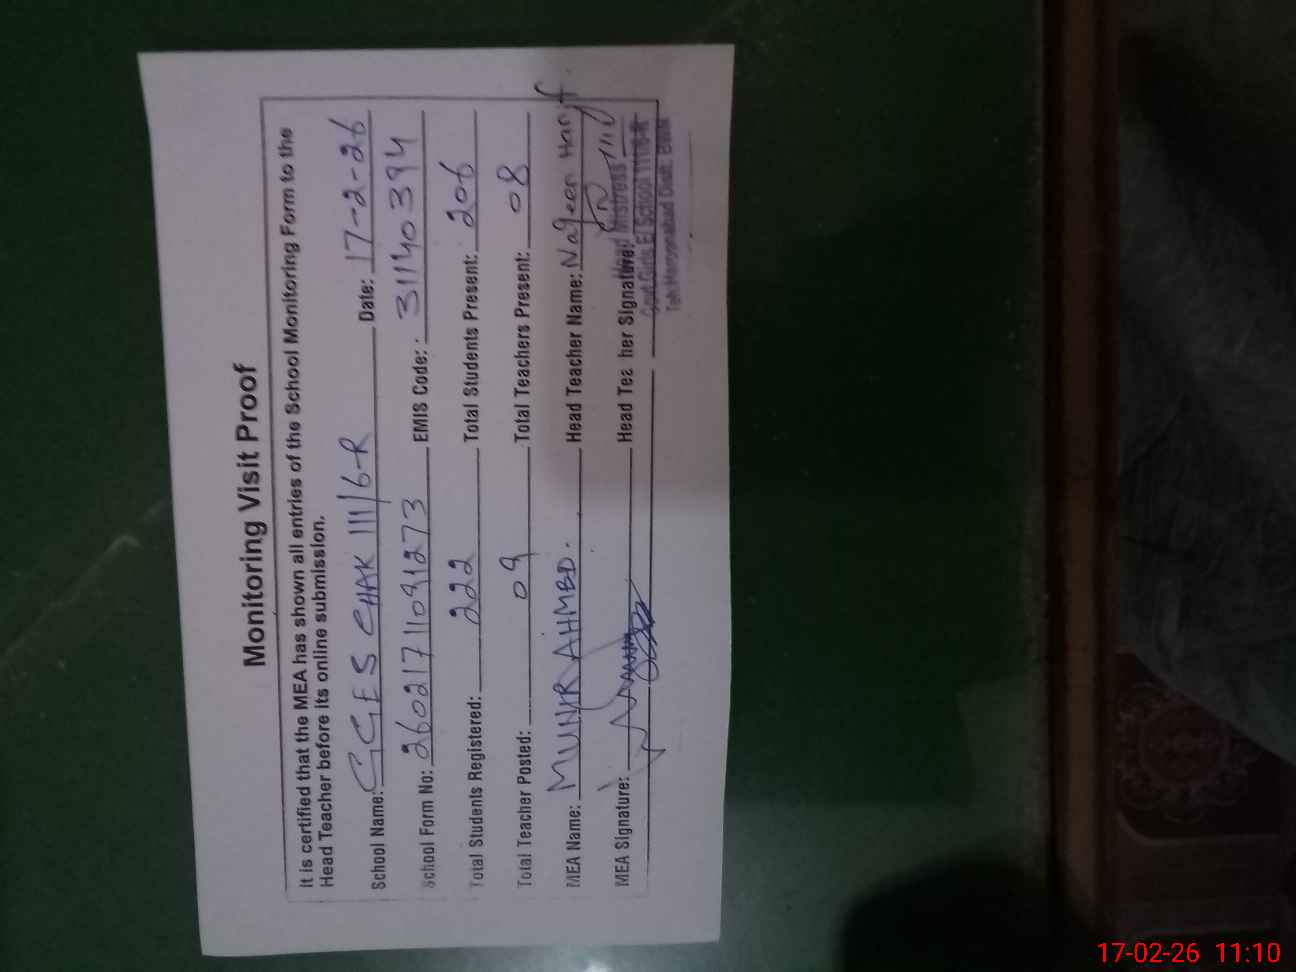 Monitoring Visit Proof
It is certified that the MEA has shown all entries of the School Monitoring Form to the
Head Teacher before its online submission.
School Name: GGES CHAK 111/6-R Date: 17-2-26
School Form No: 26021711091273 EMIS Code: 31140394
Total Students Registered: 222 Total Students Present: 206
Total Teacher Posted: 09 Total Teachers Present: 08
MEA Name: MUNIR AHMED. Head Teacher Name: Nageen Hanif
MEA Signature: Head Teacher Signature:
Head Mistress
Govt Girls E/ School 111/6-R
Teh Haroonabad Distt. BWN
17-02-26 11:10